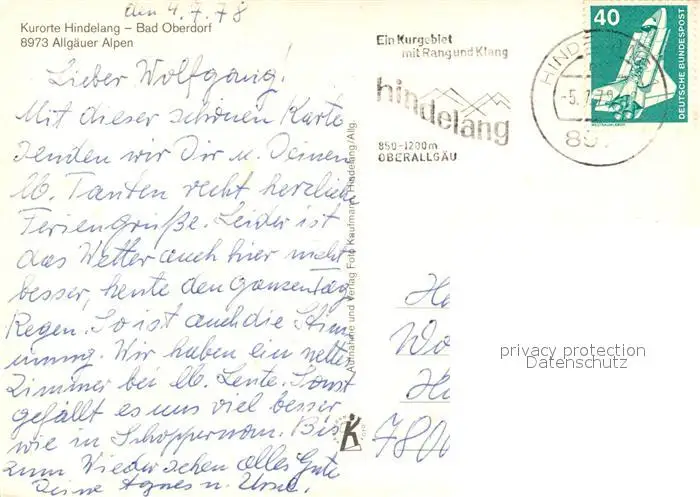 den 4.7.78
Kurorte Hindelang – Bad Oberdorf
8973 Allgäuer Alpen
Lieber Wolfgang!
Mit dieser schönen Karte
senden wir Dir u. Deinen
lb. Tanten recht herzliche
Feriengrüße. Leider ist
das Wetter auch hier nicht
besser, heute den ganzen Tag
Regen. So ist auch die Stim
mung. Wir haben ein nettes
Zimmer bei lb. Leute. Sonst
gefällt es uns viel besser
wie in Schoppernau. Bis
zum Wiedersehen alles Gute
Deine Agnes u. Ursel.
Aufnahme und Verlag Foto Kaufmann, Hindelang/Allg.
Ein Kurgebiet
mit Rang und Klang
hindelang
850-1200m
OBERALLGÄU
HINDE
-5.7.78
897
40
DEUTSCHE BUNDESPOST
He
Wo
Ha
7800
privacy protection
Datenschutz